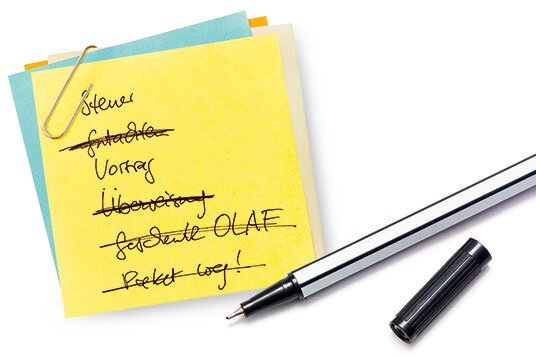 Steuer
Gutachten
Vortrag
Überweisung
Geschenk OLAF
Paket weg!